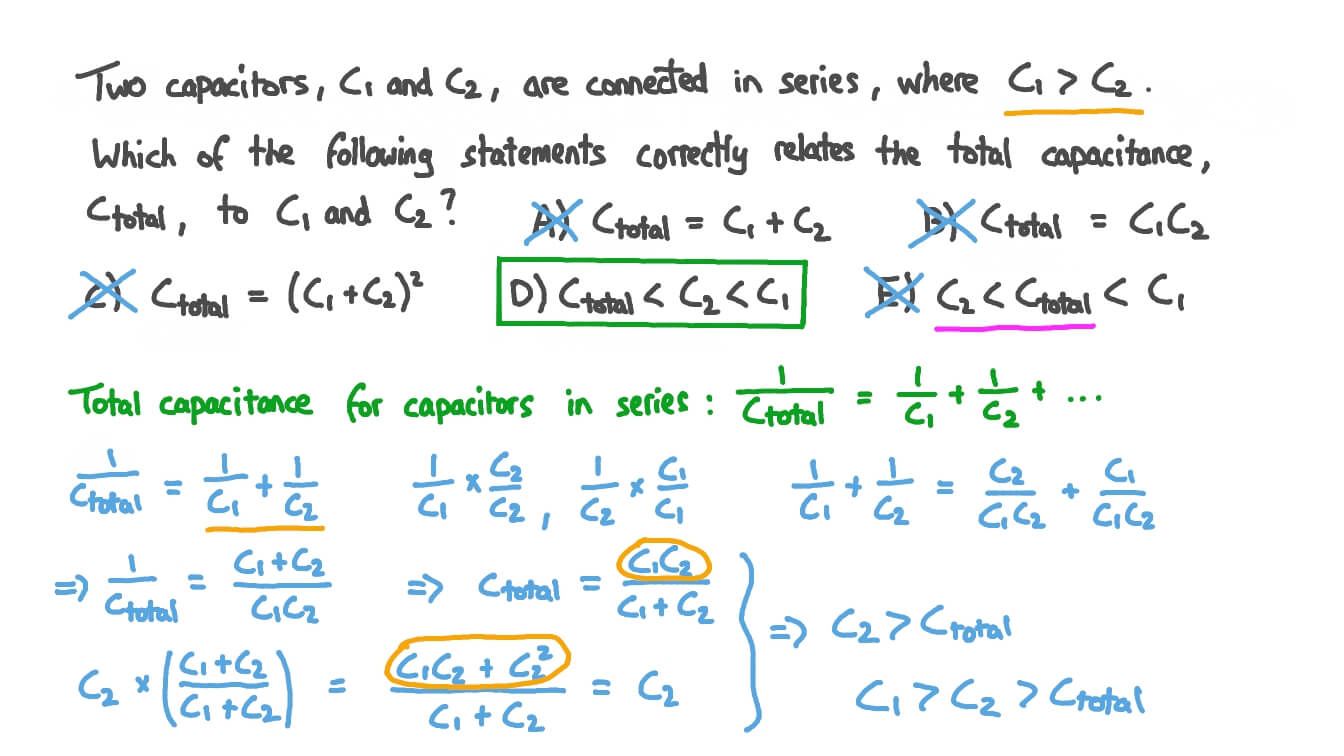 Two capacitors, C₁ and C₂, are connected in series, where C₁ > C₂.
Which of the following statements correctly relates the total capacitance,
Ctotal, to C₁ and C₂? A) Ctotal = C₁ + C₂ B) Ctotal = C₁C₂
C) Ctotal = (C₁ + C₂)² D) Ctotal < C₂ < C₁ E) C₂ < Ctotal < C₁
Total capacitance for capacitors in series: 1/Ctotal = 1/C₁ + 1/C₂ + ...
1/Ctotal = 1/C₁ + 1/C₂ 1/C₁ × C₂/C₂, 1/C₂ × C₁/C₁ 1/C₁ + 1/C₂ = C₂/C₁C₂ + C₁/C₁C₂
⇒ 1/Ctotal = (C₁ + C₂)/C₁C₂ ⇒ Ctotal = C₁C₂/(C₁ + C₂)
⇒ C₂ > Ctotal
C₂ × ((C₁ + C₂)/(C₁ + C₂)) = (C₁C₂ + C₂²)/(C₁ + C₂) = C₂
C₁ > C₂ > Ctotal